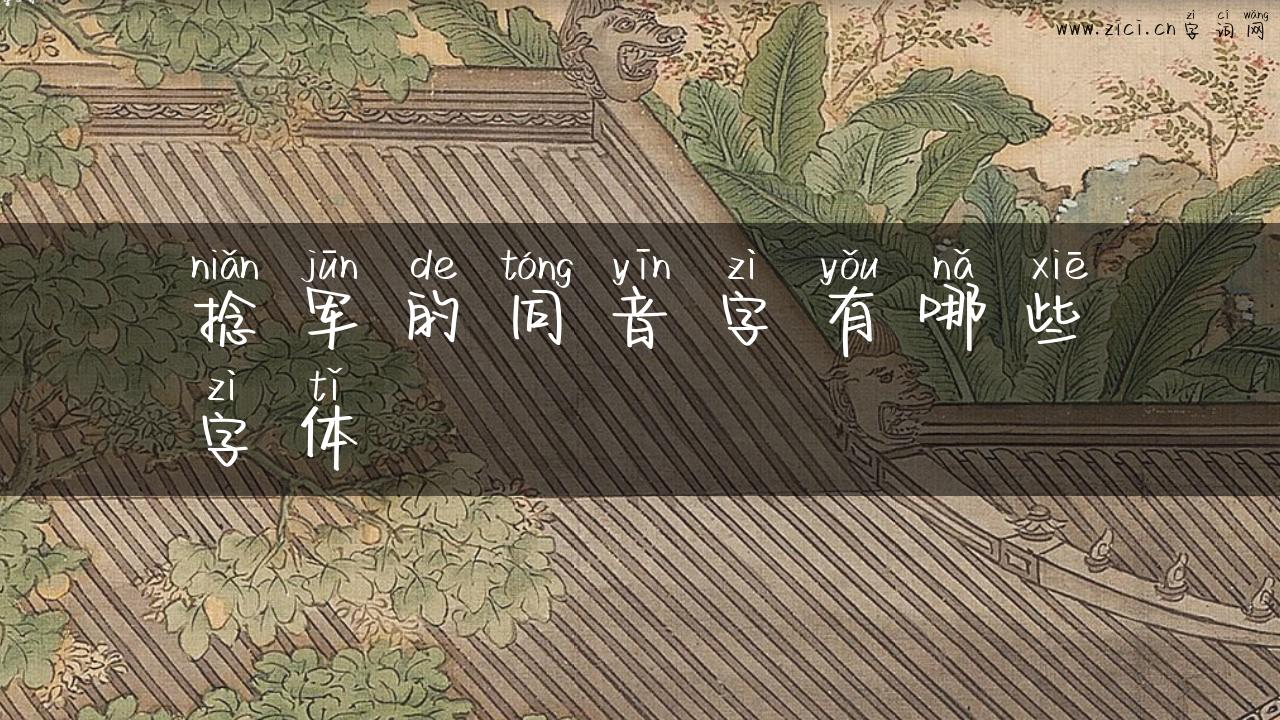 zì cí wǎng
www.zici.cn 字词网
niǎn jūn de tóng yīn zì yǒu nǎ xiē
捻军的同音字有哪些
zì tǐ
字体